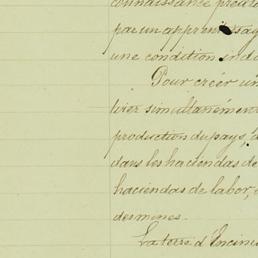 connaissance
par un apprentissag
une condition ind
Pour créer un
simultanément
production du pays,
dans les haciendas de
haciendas de labor,
des mines.
La terre d'Encin